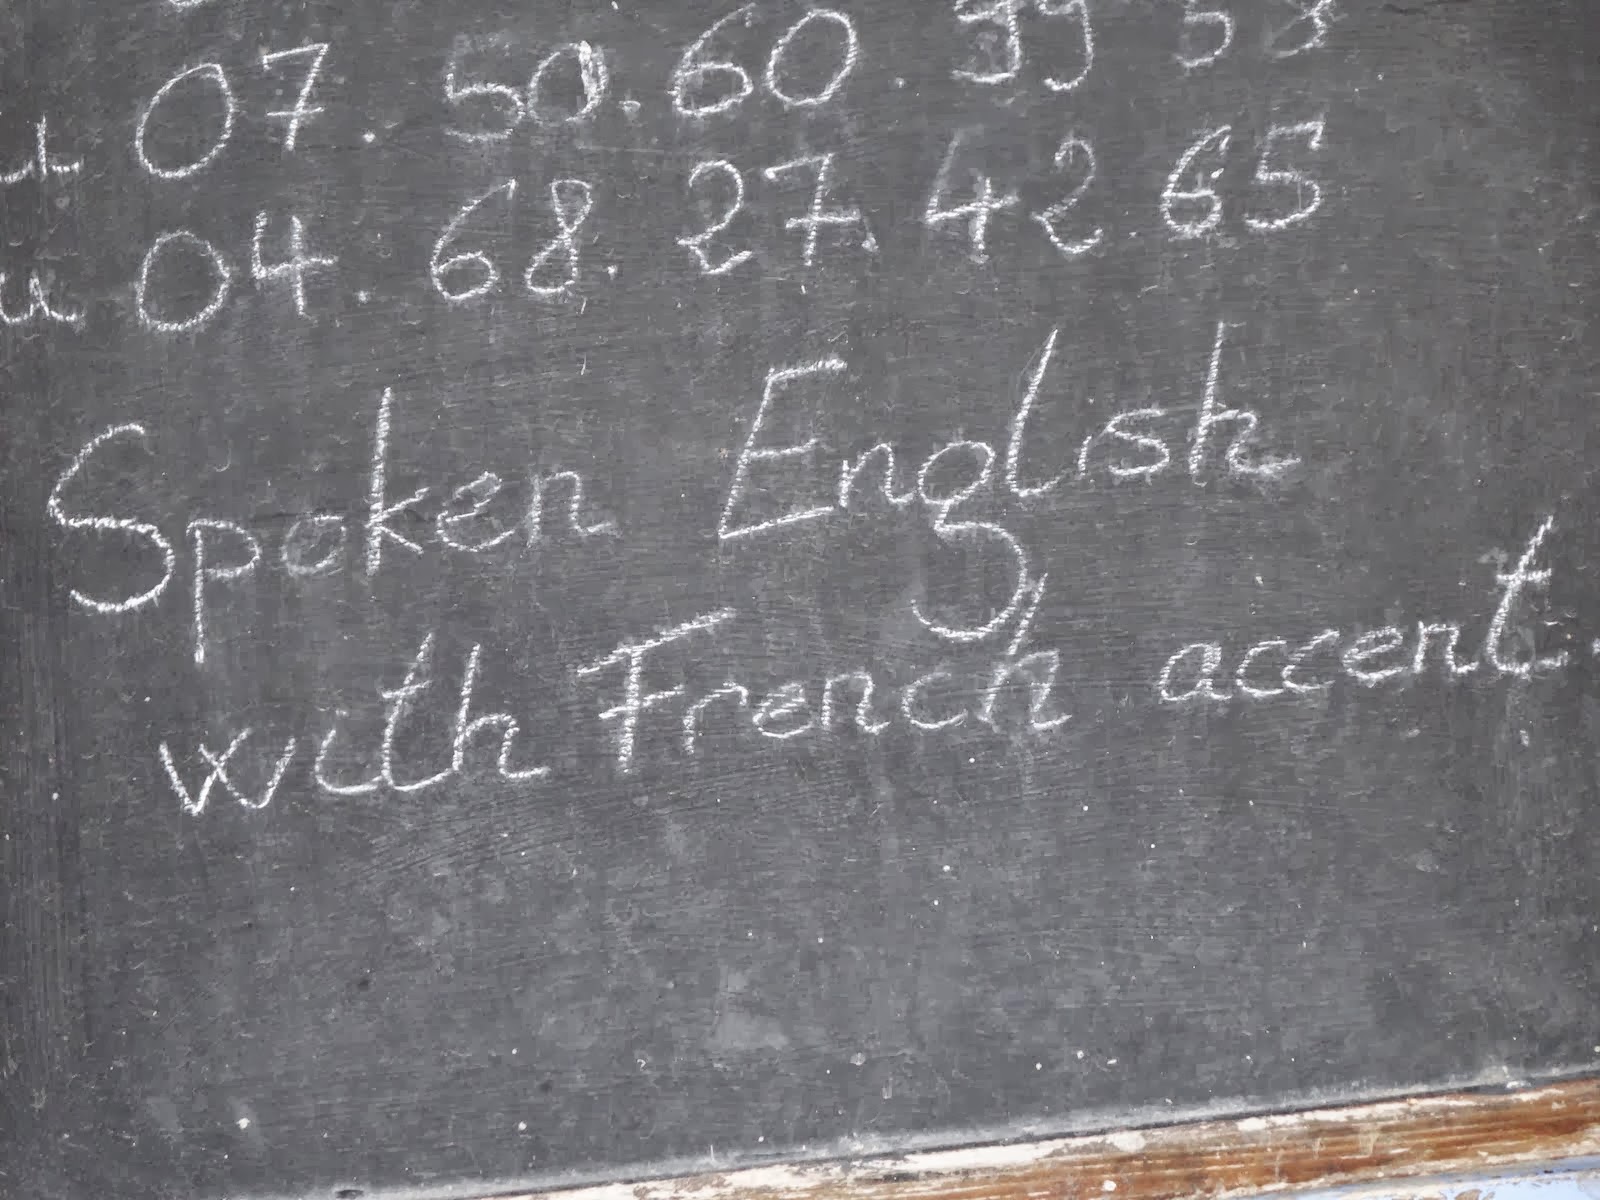 07. 50.60. 39 58
ou 04. 68. 27. 42.65
Spoken English
with French accent.